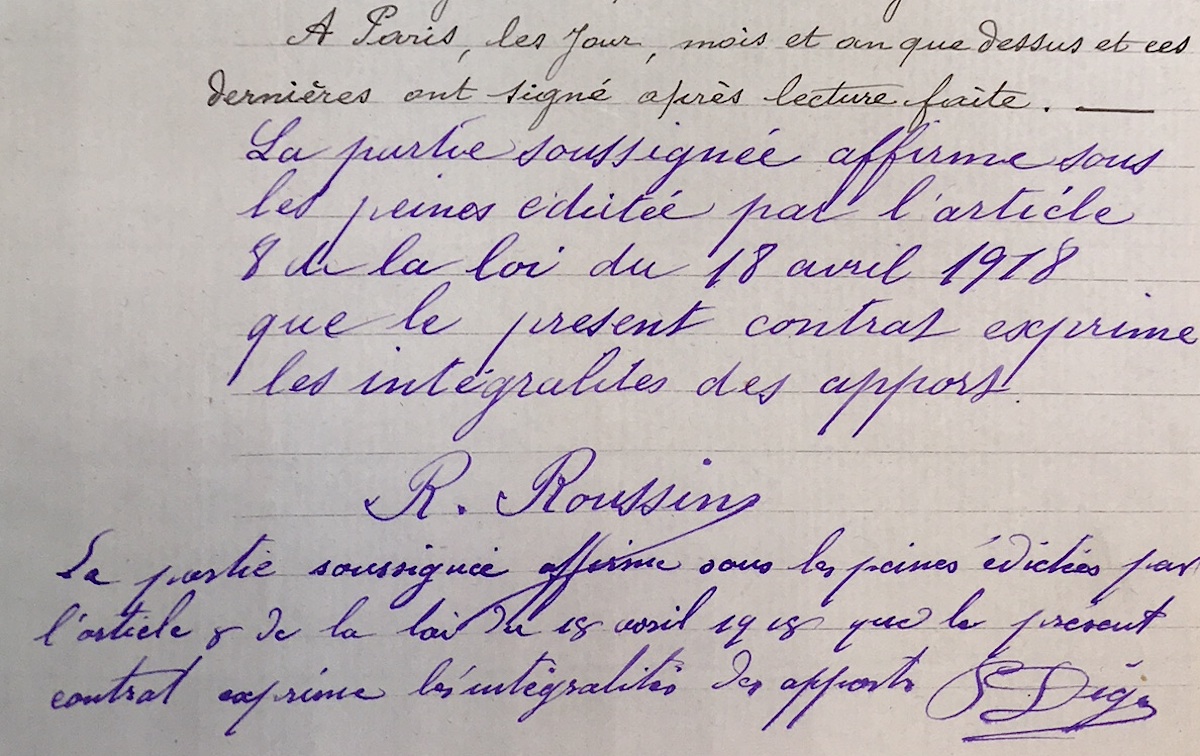 A Paris, les jour, mois et an que dessus et ces
dernières ont signé après lecture faite. —
La partie soussignée affirme sous
les peines édictée par l'article
8 de la loi du 18 avril 1918
que le present contrat exprime
les intégralites des apport.
R. Roussin
La partie soussignée affirme sous les peines édictées par
l'article 8 de la loi du 18 avril 1918 que le présent
contrat exprime les intégralités des apports